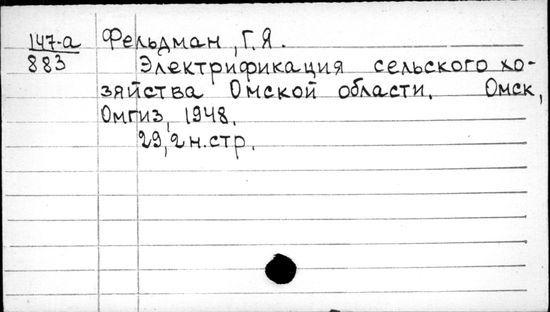 147-а Фельдман, Г.Я.
883 Электрификация сельского хо-
зяйства Омской области. Омск,
Омгиз, 1948.
29, 2 н.стр.